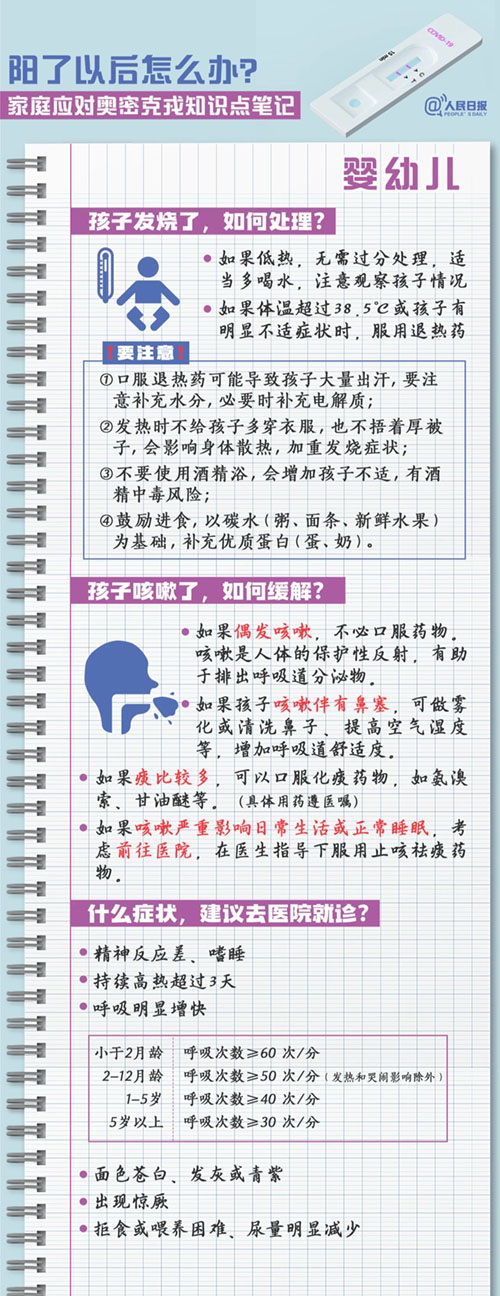 阳了以后怎么办?
家庭应对奥密克戎知识点笔记
COVID-19
C
T
@人民日报
PEOPLE'S DAILY
婴幼儿
孩子发烧了，如何处理?
如果低热，无需过分处理，适
当多喝水，注意观察孩子情况
如果体温超过38.5℃或孩子有
明显不适症状时，服用退热药
!要注意!
①口服退热药可能导致孩子大量出汗,要注
意补充水分,必要时补充电解质;
②发热时不给孩子多穿衣服,也不捂着厚被
子,会影响身体散热,加重发烧症状;
③不要使用酒精浴,会增加孩子不适,有酒
精中毒风险;
④鼓励进食,以碳水(粥、面条、新鲜水果)
为基础,补充优质蛋白(蛋、奶)。
孩子咳嗽了，如何缓解?
如果偶发咳嗽，不必口服药物。
咳嗽是人体的保护性反射，有助
于排出呼吸道分泌物。
如果孩子咳嗽伴有鼻塞，可做雾
化或清洗鼻子、提高空气湿度
等，增加呼吸道舒适度。
如果痰比较多，可以口服化痰药物，如氨溴
索、甘油醚等。(具体用药遵医嘱)
如果咳嗽严重影响日常生活或正常睡眠，考
虑前往医院，在医生指导下服用止咳祛痰药
物。
什么症状，建议去医院就诊?
精神反应差、嗜睡
持续高热超过3天
呼吸明显增快
小于2月龄 呼吸次数≥60 次/分
2-12月龄 呼吸次数≥50 次/分(发热和哭闹影响除外)
1-5岁 呼吸次数≥40 次/分
5岁以上 呼吸次数≥30 次/分
面色苍白、发灰或青紫
出现惊厥
拒食或喂养困难、尿量明显减少